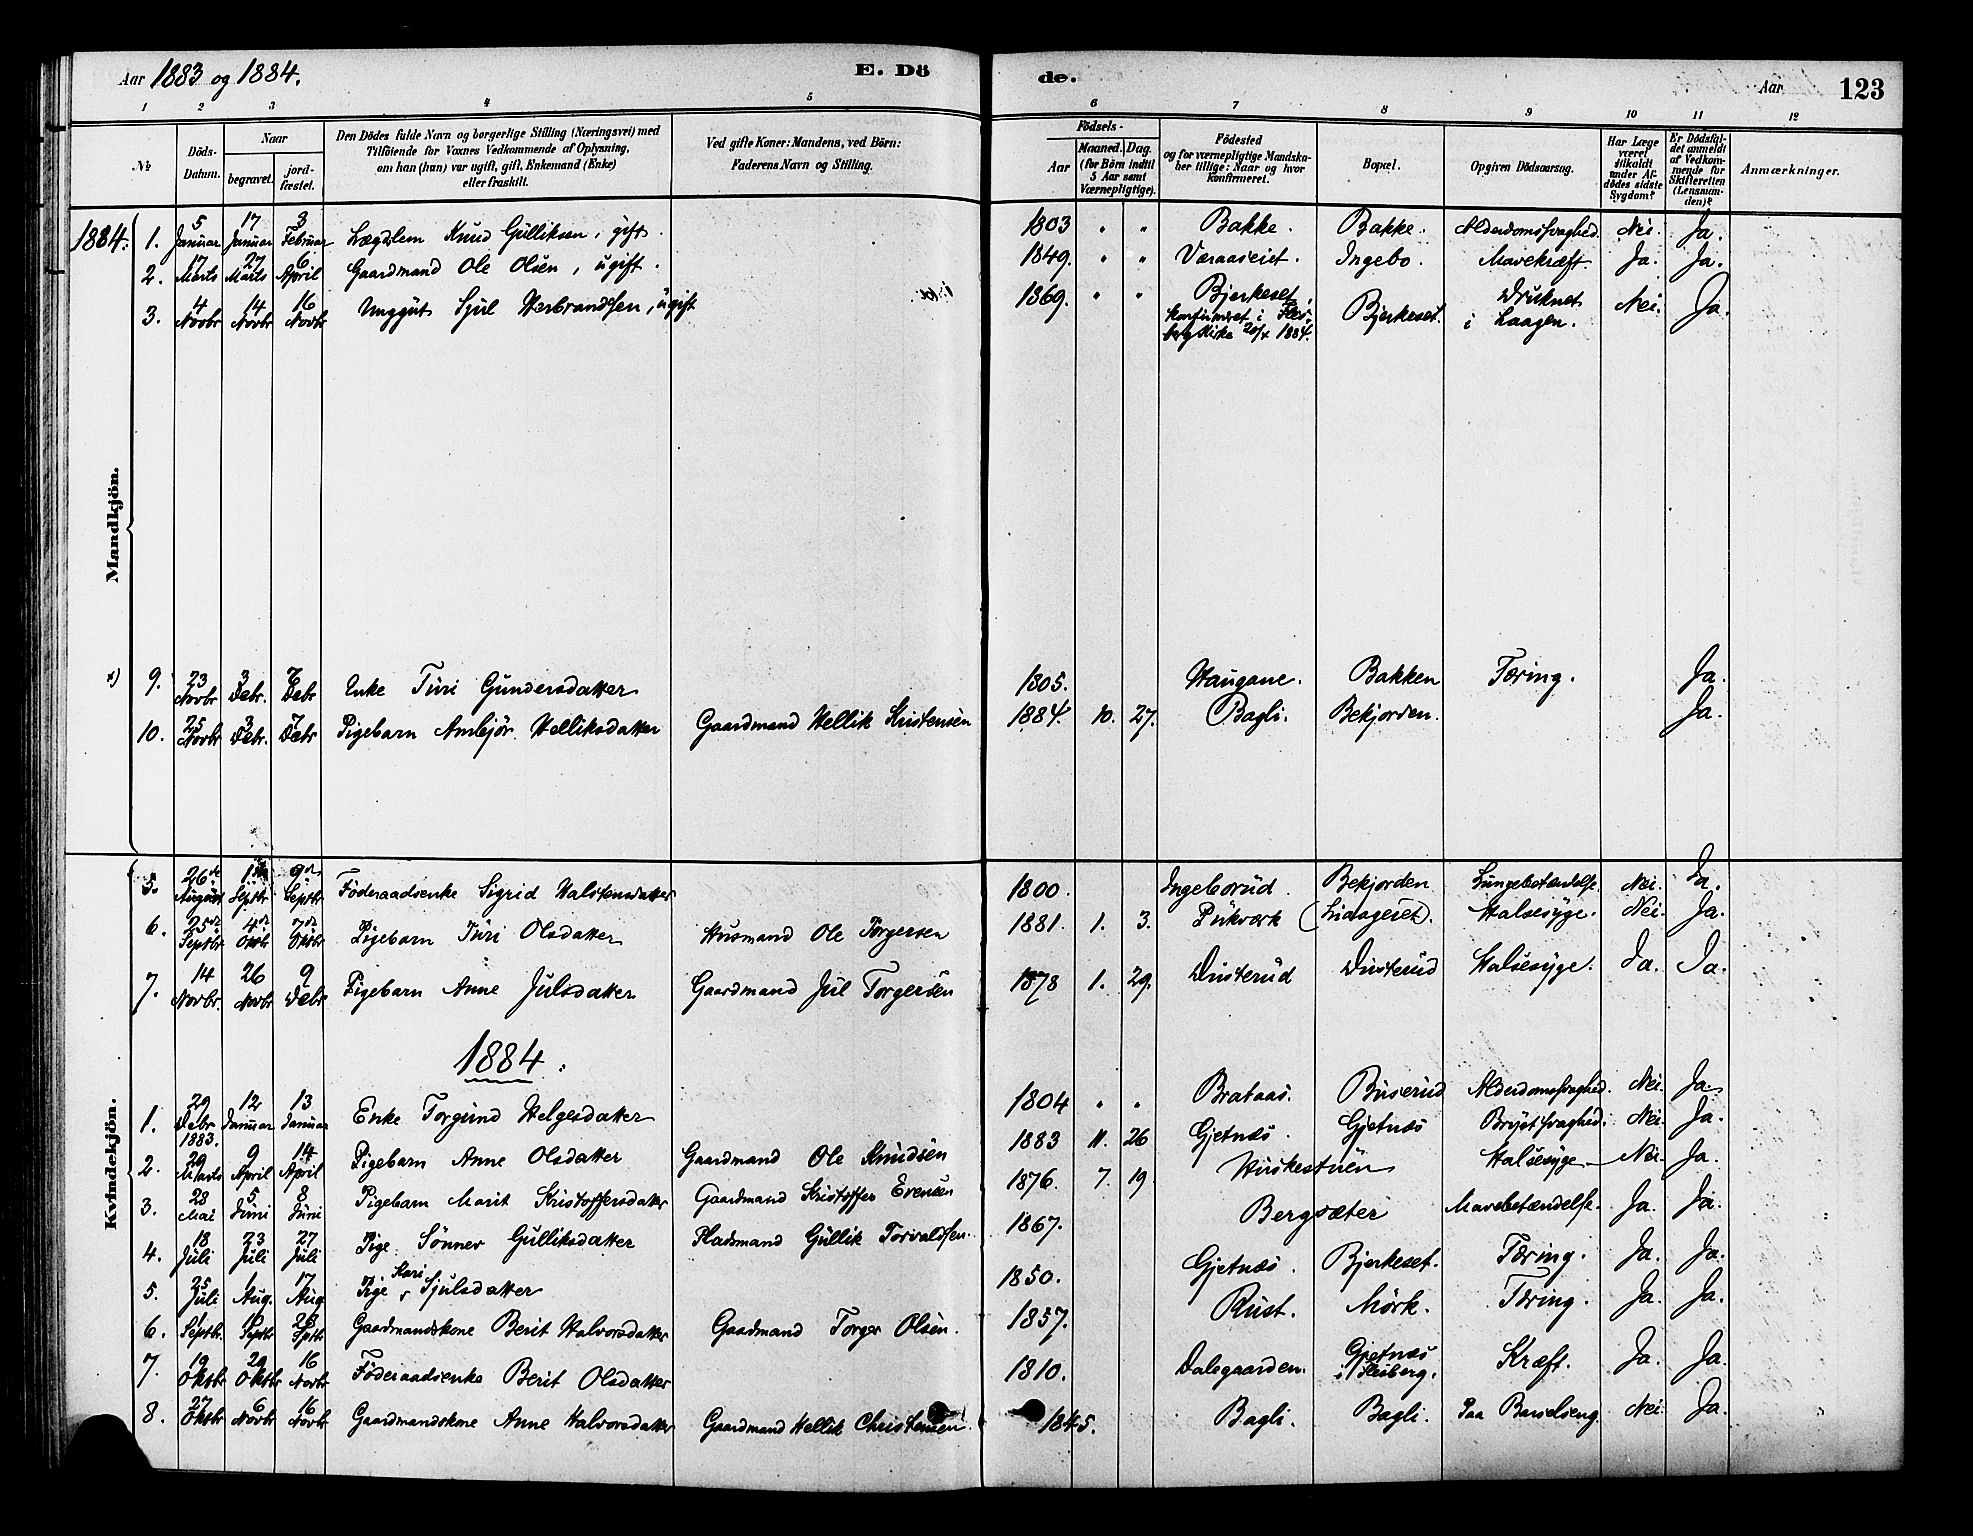 Aar 1883 og 1884. E. Dö de. Aar 123
1 2 3 4 5 6 7 8 9 10 11 12
№
Döds-Datum.
Naar
begravet.
jord-fæstet.
Den Dödes fulde Navn og borgerlige Stilling (Næringsvei) med
Tilföiende for Voxnes Vedkommende af Oplysning,
om han (hun) var ugift, gift, Enkemand (Enke)
eller fraskilt.
Ved gifte Koner: Mandens, ved Börn:
Faderens Navn og Stilling.
Födsels-
Aar
Maaned. Dag.
(for Börn indtil
5 Aar samt
Værnepligtige).
Födested
og for værnepligtige Mandska-
ber tillige: Naar og hvor
konfirmeret.
Bopæl.
Opgiven Dödsaarsag.
Har Læge
været
tilkaldt
under Af-
dödes sidste
Sygdom?
Er Dödsfal-
det anmeldt
af Vedkom-
mende for
Skifteretten
(Lensman-
den)?
Anmærkninger.
Mandkjön.
1884. 1. 5 Januar 17 Januar 3 Februar Lægdslem Knud Gulliksen, gift. 1803 " " Bakke. Bakke. Alderdomssvaghed. Nei. Ja.
2. 17 Marts 27 Marts 6 April Gaardmand Ole Olsen, ugift. 1849. " " Væraaseiet. Ingebo. Mavekræft. Ja. Ja.
3. 4 Novbr 14 Novbr 16 Novbr Unggut Sjul Herbrandsen, ugift 1869. " " Bjerkeset, konfirmeret i Flesberg Kirke 20/4 1884. Bjerkeset. Druknet i Laagen. Nei. Ja.
x) 9. 23 Novbr 3 Debr. 7 Debr Enke Turi Gundersdatter 1805. Haugane. Bakken Tæring. Ja.
10. 25 Novbr 3 Debr. 7 Debr Pigebarn Ambjør Helliksdatter Gaardmand Hellik Kristensen 1884. 10. 27. Bagli. Bekjorden. Ja.
Kvindekjön.
5. 26de August 1ste Septbr 9de Septbr Föderaadsenke Sigrid Halstensdatter 1800. Ingeborud. Bekjorden Lungebetændelse. Nei. Ja.
6. 25de Septbr 4de Oktbr 7de Oktbr Pigebarn Turi Olsdatter Husmand Ole Torgersen 1881. 1. 3. Pukverk (Liaageset). Halsesyge. Nei. Ja.
7. 14 Novbr. 26 Novbr 9 Debr. Pigebarn Anne Julsdatter Gaardmand Jul Torgersen 1878 1. 29. Dusterud Dusterud Halsesyge. Ja. Ja.
1884.
1. 29 Debr 1883. 12 Januar 13 Januar Enke Torgund Helgesdatter 1804 " " Brataas. Buserud Alderdomssvaghed. Nei. Ja.
2. 29 Marts 9 April 14 April Pigebarn Anne Olsdatter Gaardmand Ole Knudsen 1883 11. 26 Gjetnæs. Gjetnæs Brystsvaghed. Nei. Ja.
3. 28 Mai 5 Juni 8 Juni Pigebarn Marit Kristoffersdatter Gaardmand Kristoffer Evensen 1876. 7. 19 Huskestuen Halsesyge. Nei. Ja.
4. 18 Juli 23 Juli 27 Juli Pige Sönner Gulliksdatter Pladsmand Gullik Torvaldsen. 1867. Bergsæter Mavebetændelse. Ja. Ja.
5. 25 Juli 1 Aug. 17 Aug Pige Kari Sjulsdatter 1850. Gjetnæs. Bjerkeset. Tæring. Ja. Ja.
6. 1 Septbr. Septbr 28 Septbr. Gaardmandskone Berit Halvorsdatter Gaardmand Torger Olsen. 1857. Rust. Mörk. Tæring. Ja. Ja.
7. 19 Oktbr 29 Oktbr 16 Novbr Föderaadsenke Berit Olsdatter 1810. Dalegaarden. Gjetnæs i Flesberg. Kræft. Ja. Ja.
8. 27 Oktbr 6 Novbr 16 Novbr Gaardmandskone Anne Halvorsdatter Gaardmand Hellik Christensen. 1845. Bagli. Bagli. Paa Barselseng. Nei. Ja.